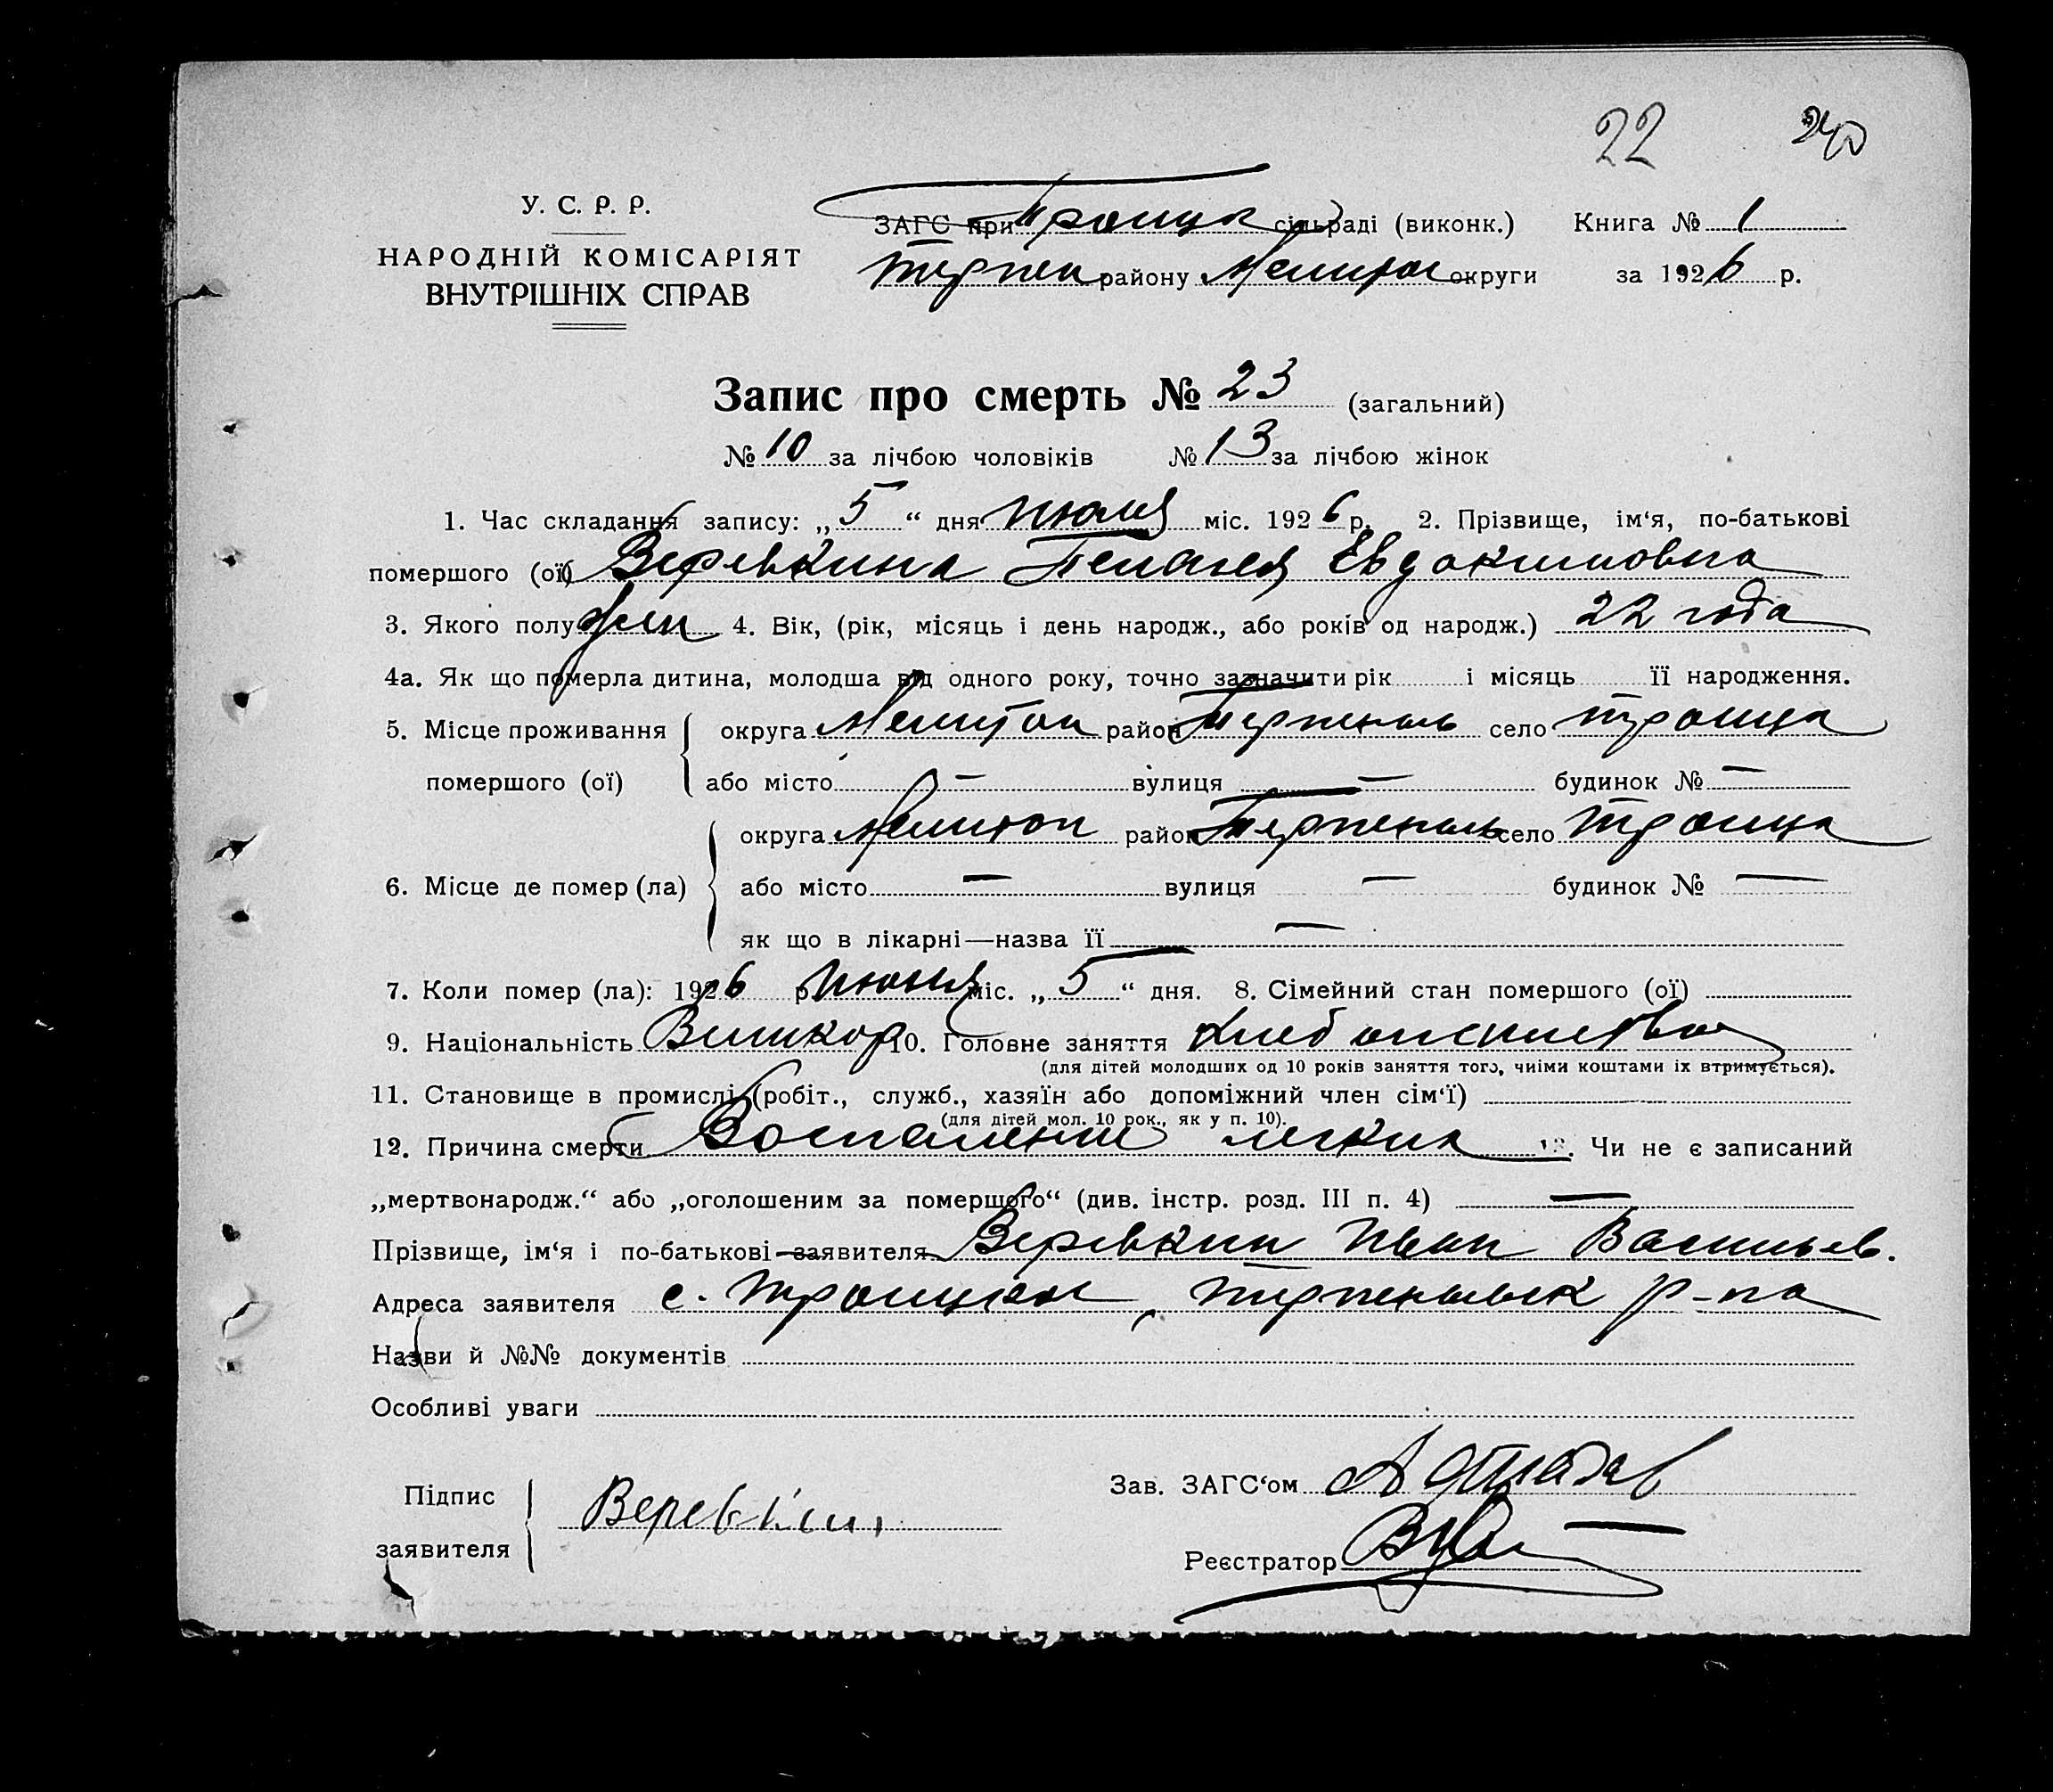 22
У. С. Р. Р.
НАРОДНІЙ КОМІСАРІЯТ
ВНУТРІШНІХ СПРАВ
ЗАГС при Троицк сільраді (виконк.) Книга № 1
Терпен району Мелитоп округи за 1926 р.
Запис про смерть № 23 (загальний)
№ 10 за лічбою чоловіків № 13 за лічбою жінок
1. Час складання запису: „5“ дня июля міс. 1926 р. 2. Прізвище, ім‘я, по-батькові
помершого (ої) Веревкина Пелагея Евдокимовна
3. Якого полу жен 4. Вік, (рік, місяць і день народж., або років од народж.) 22 года
4а. Як що померла дитина, молодша від одного року, точно зазначити рік і місяць її народження.
5. Місце проживання округа Мелитоп район Терпеньь село Троицк
помершого (ої) або місто — вулиця — будинок № —
округа Мелитоп район Терпеньь село Троицк
6. Місце де помер (ла) або місто — вулиця — будинок № —
як що в лікарні—назва її —
7. Коли помер (ла): 1926 р. июня міс. „5“ дня. 8. Сімейний стан помершого (ої)
9. Національність Великор 10. Головне заняття Хлебопашество
(для дітей молодших од 10 років заняття того, чиїми коштами їх втримується).
11. Становище в промислі (робіт., служб., хазяїн або допоміжний член сім‘ї)
(для дітей мол. 10 рок., як у п. 10).
12. Причина смерти Воспаление легких 13. Чи не є записаний
„мертвонародж.“ або „оголошеним за помершого“ (див. інстр. розд. III п. 4) —
Прізвище, ім‘я і по-батькові заявителя Веревкин Иван Васильев.
Адреса заявителя с. Троицкое, Терпеньевск р-на
Назви й №№ документів
Особливі уваги
Підпис
заявителя Веревкин
Зав. ЗАГС‘ом
Реєстратор